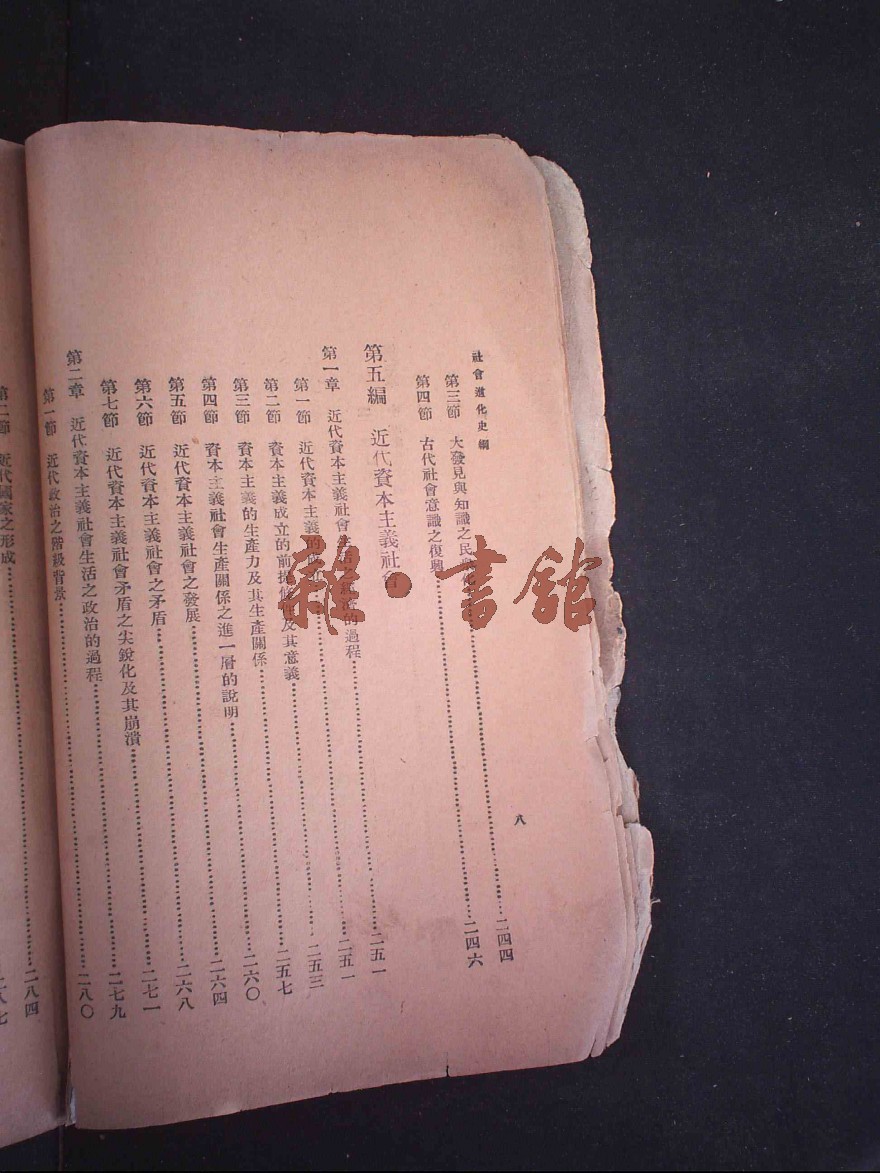 社會進化史綱
第三節 大發見與知識之民 二四四
第四節 古代社會意識之復興 二四六
第五編 近代資本主義社會 二五一
第一章 近代資本主義社會生活之經濟的過程 二五一
第一節 近代資本主義的 二五三
第二節 資本主義成立的前提條件及其意義 二五七
第三節 資本主義的生產力及其生產關係 二六〇
第四節 資本主義社會生產關係之進一層的說明 二六四
第五節 近代資本主義社會之發展 二六八
第六節 近代資本主義社會之矛盾 二七一
第七節 近代資本主義社會矛盾之尖銳化及其崩潰 二七九
第二章 近代資本主義社會生活之政治的過程 二八〇
第一節 近代政治之階級背景 二八四
第二節 近代國家之形成 二八七
八
雜·書館